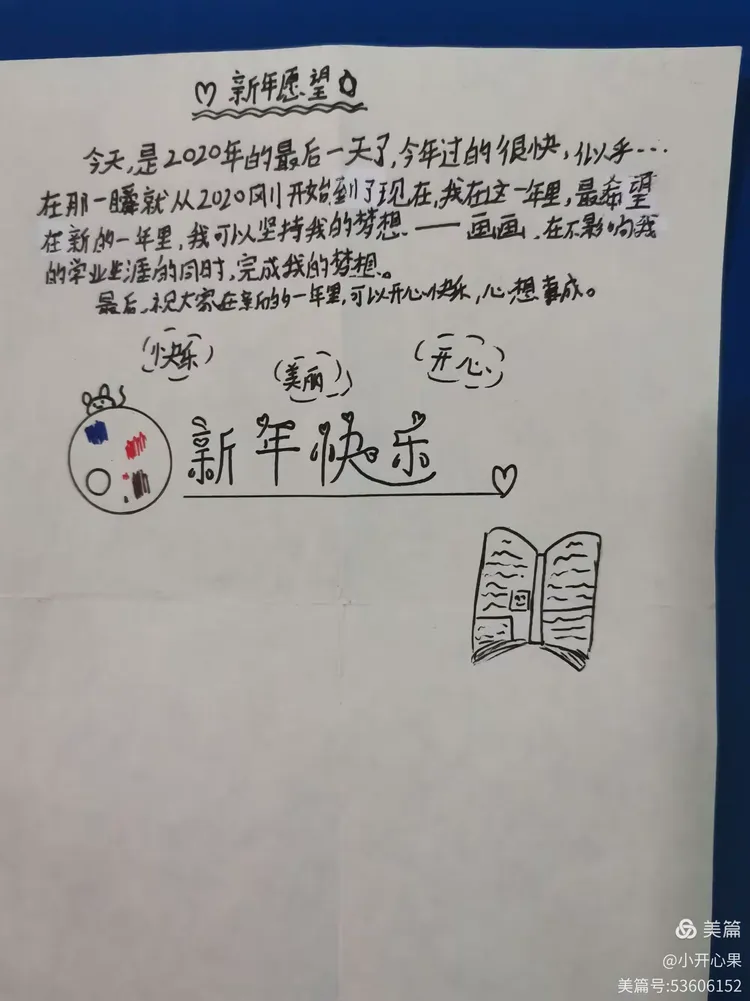 新年愿望
今天,是2020年的最后一天了,今年过的很快,似乎...
在那一瞬就从2020刚开始到了现在,我在这一年里,最希望
在新的一年里,我可以坚持我的梦想——画画,在不影响我
的学业生涯的同时,完成我的梦想。
最后,祝大家在新的一年里,可以开心快乐,心想事成。
快乐
美丽
开心
新年快乐
美篇
@小开心果
美篇号:53606152